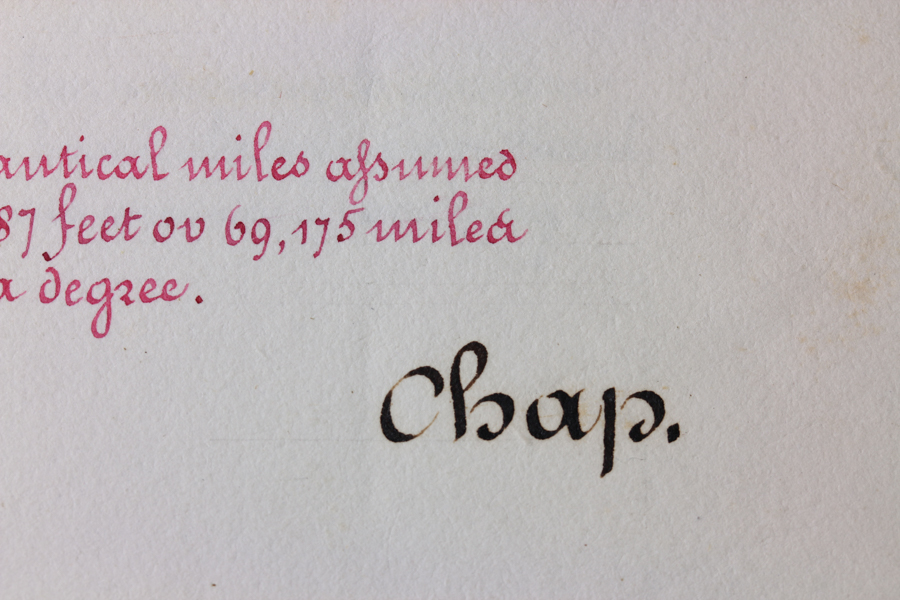 autical miles assumed
87 feet or 69,175 miles
a degree.
Chap.